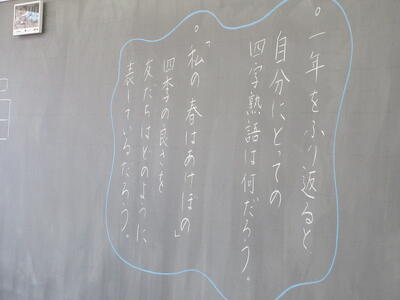 。一年をふり返ると
自分にとっての
四字熟語は何だろう。
。「私の春はあけぼの」
四季の良さを
友だちはどのように
表しているだろう。